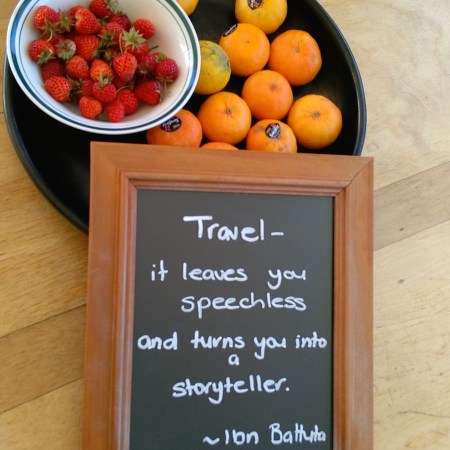 Travel -
it leaves you
speechless
and turns you into
a
storyteller.
~ Ibn Battuta